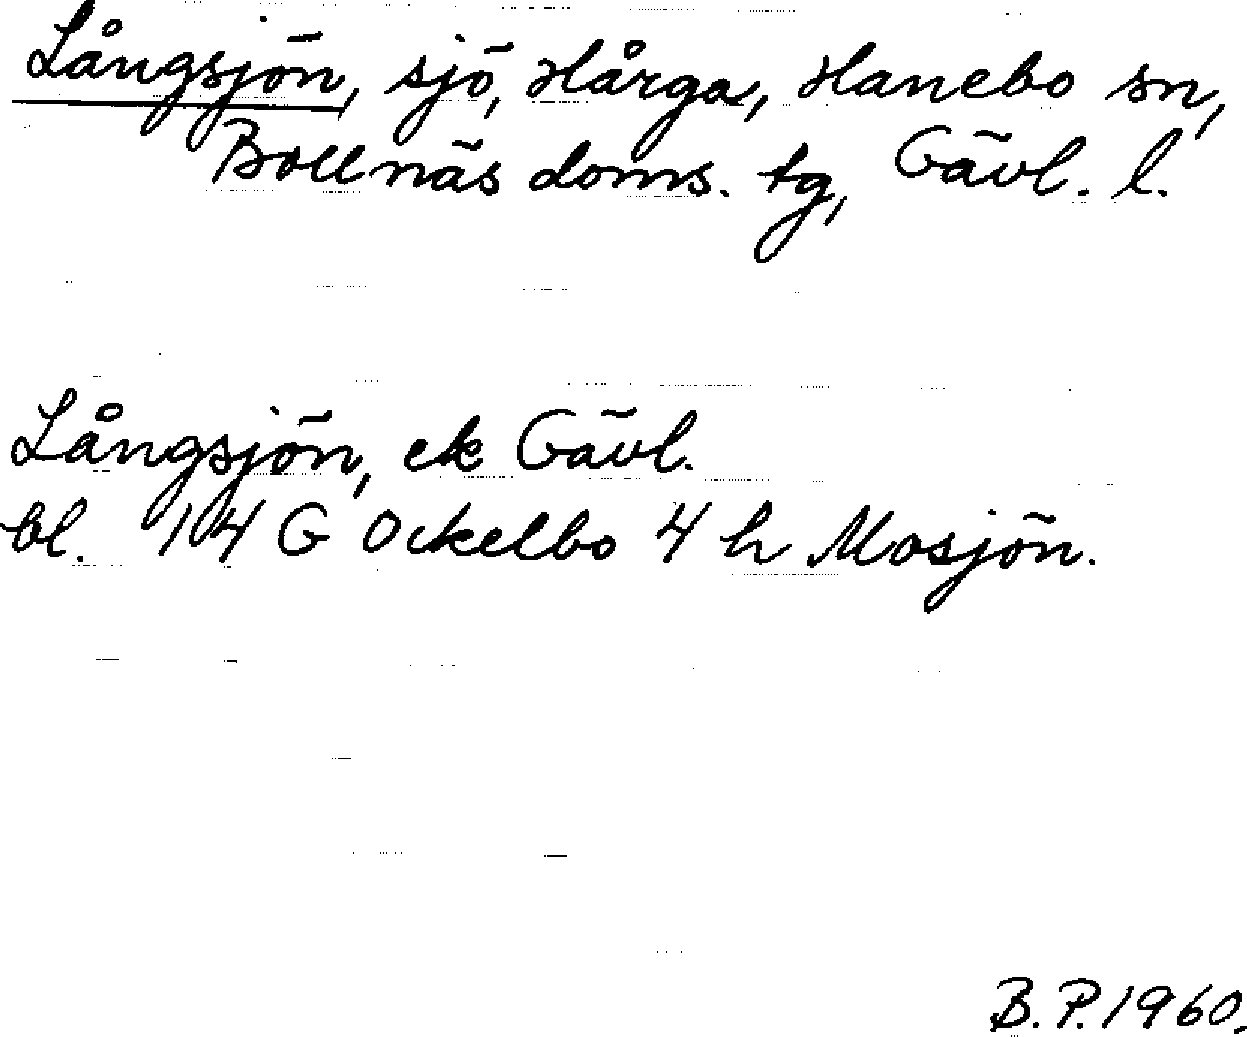 Långsjön, sjö, Hårga, Hanebo sn,
Bollnäs doms. tg, Gävl. l.
Långsjön, ek Gävl.
bl. 14 G Ockelbo 4 h Mosjön.
B. P. 1960.